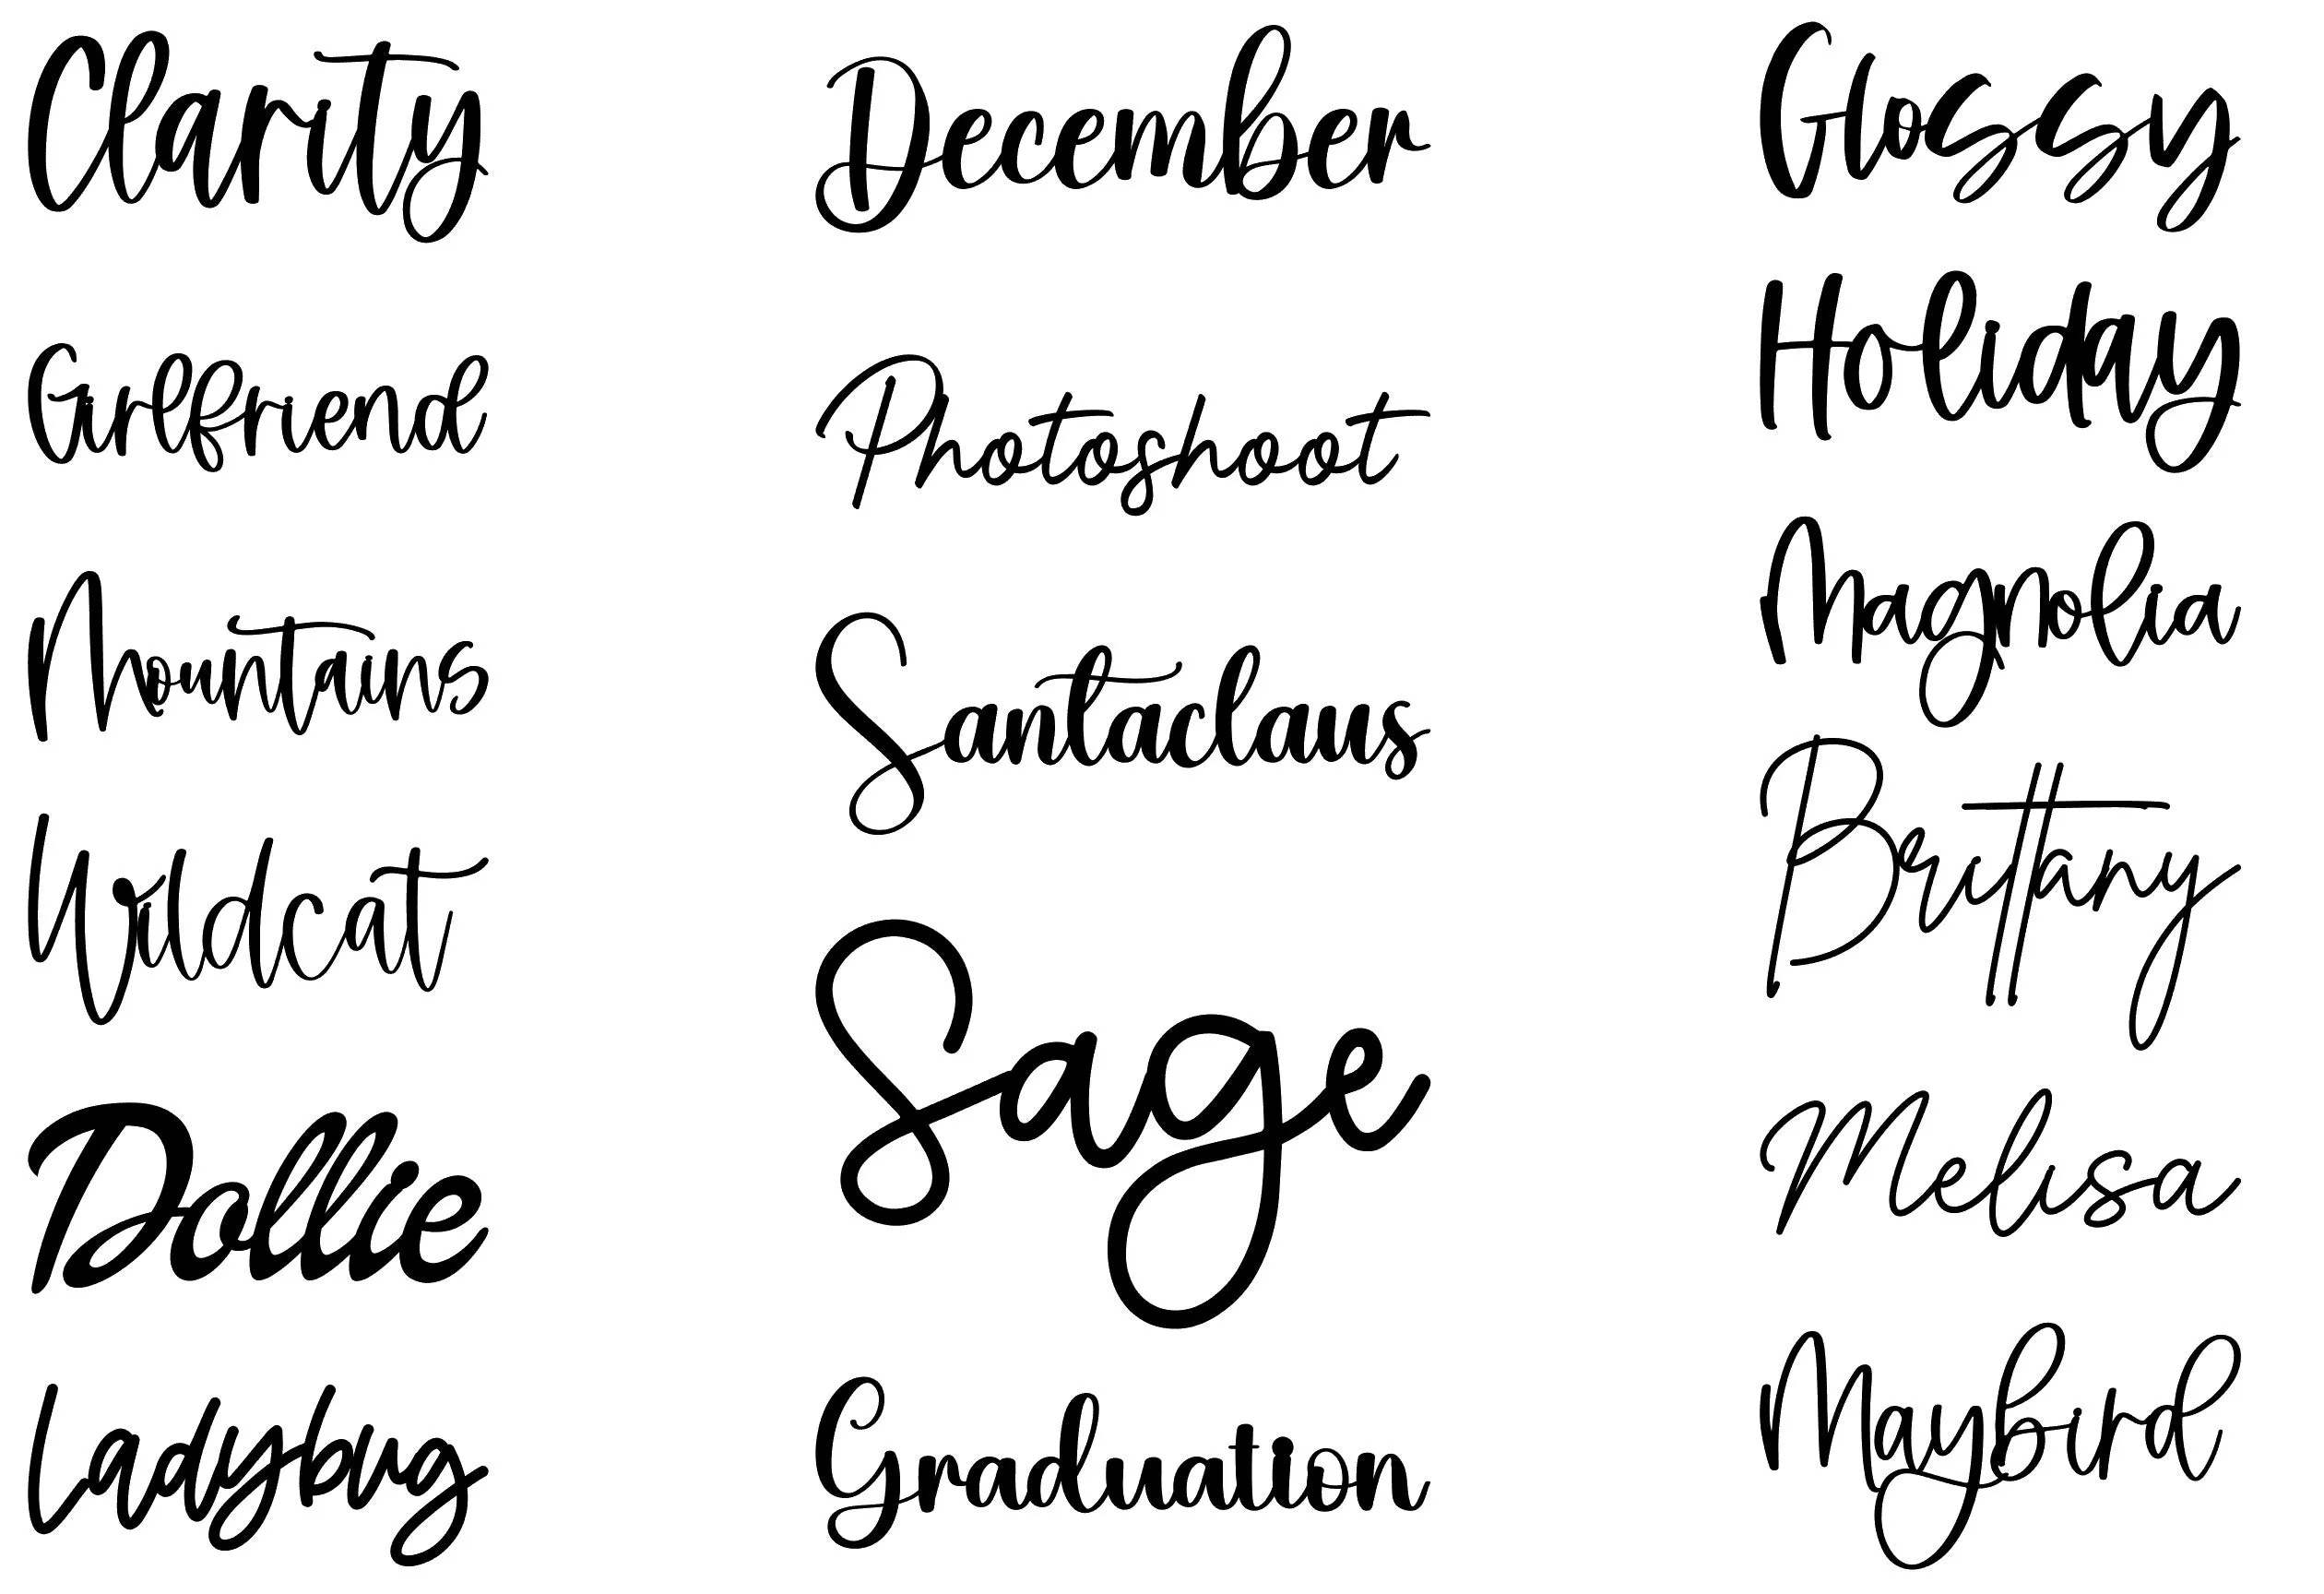 Clarity
Girlfriend
Mountains
Wildcat
Dollie
Ladybug
December
Photoshoot
Santaclaus
Sage
Graduation
Glossy
Holiday
Magnolia
Brittany
Melisa
Maybird